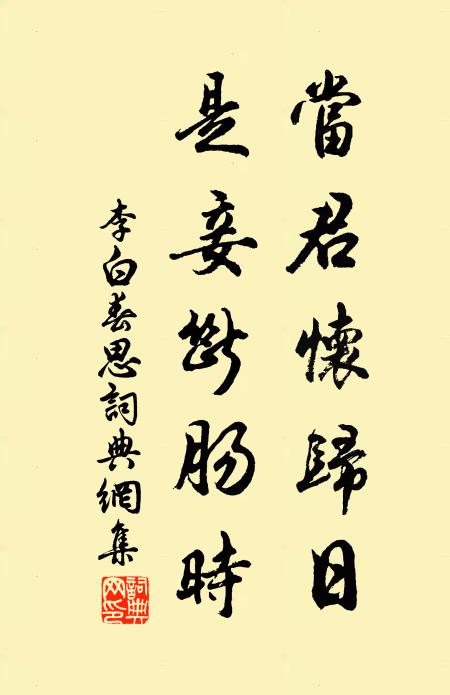 當君懷歸日
是妾斷腸時
李白春思詞典網集
詞典
网印